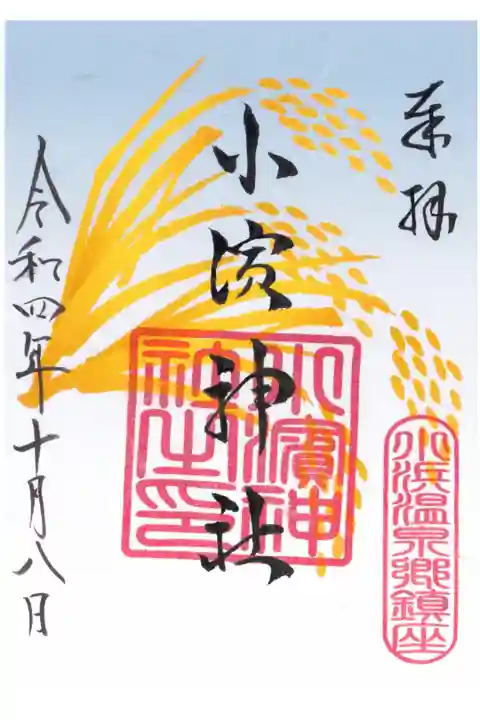 奉拝
小濱神社
小濱神社之印
小浜温泉郷鎮座
令和四年十月八日